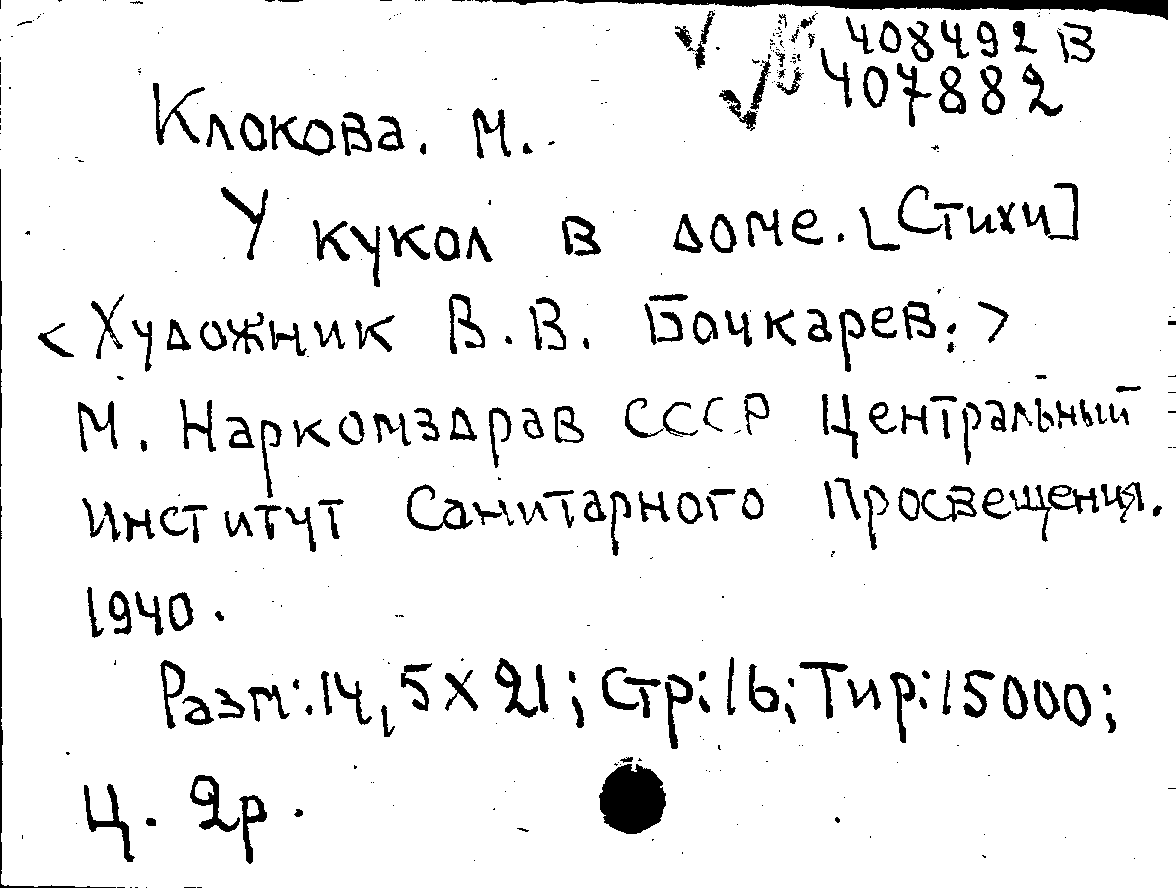 408492 В
407882
Клокова. М.
У кукол в доме. [Стихи]
<Художник В. В. Бочкарев.>
М. Наркомздрав СССР Центральный
Институт Санитарного Просвещения.
1940.
Разм: 14,5 X 21; Стр: 16; Тир: 15000;
Ц. 2р.